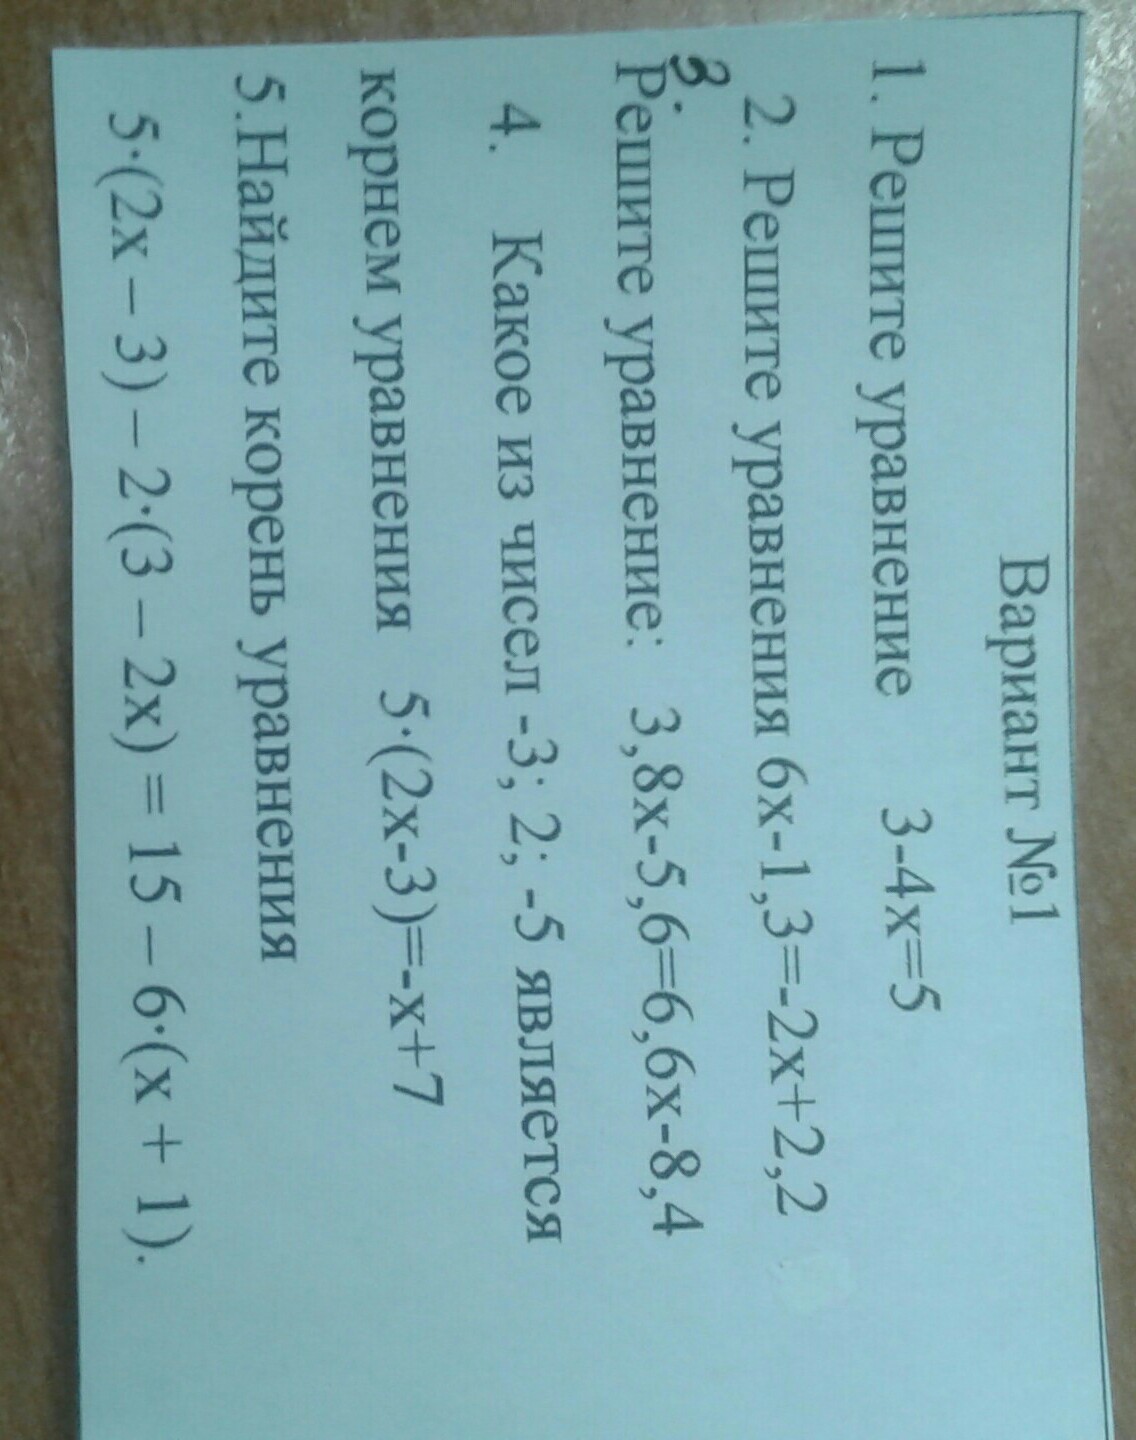 Вариант №1
1. Решите уравнение 3-4x=5
2. Решите уравнения 6x-1,3=-2x+2,2
3.
Решите уравнение: 3,8x-5,6=6,6x-8,4
4. Какое из чисел -3; 2; -5 является
корнем уравнения 5·(2x-3)=-x+7
5.Найдите корень уравнения
5·(2x – 3) – 2·(3 – 2x) = 15 – 6·(x + 1).